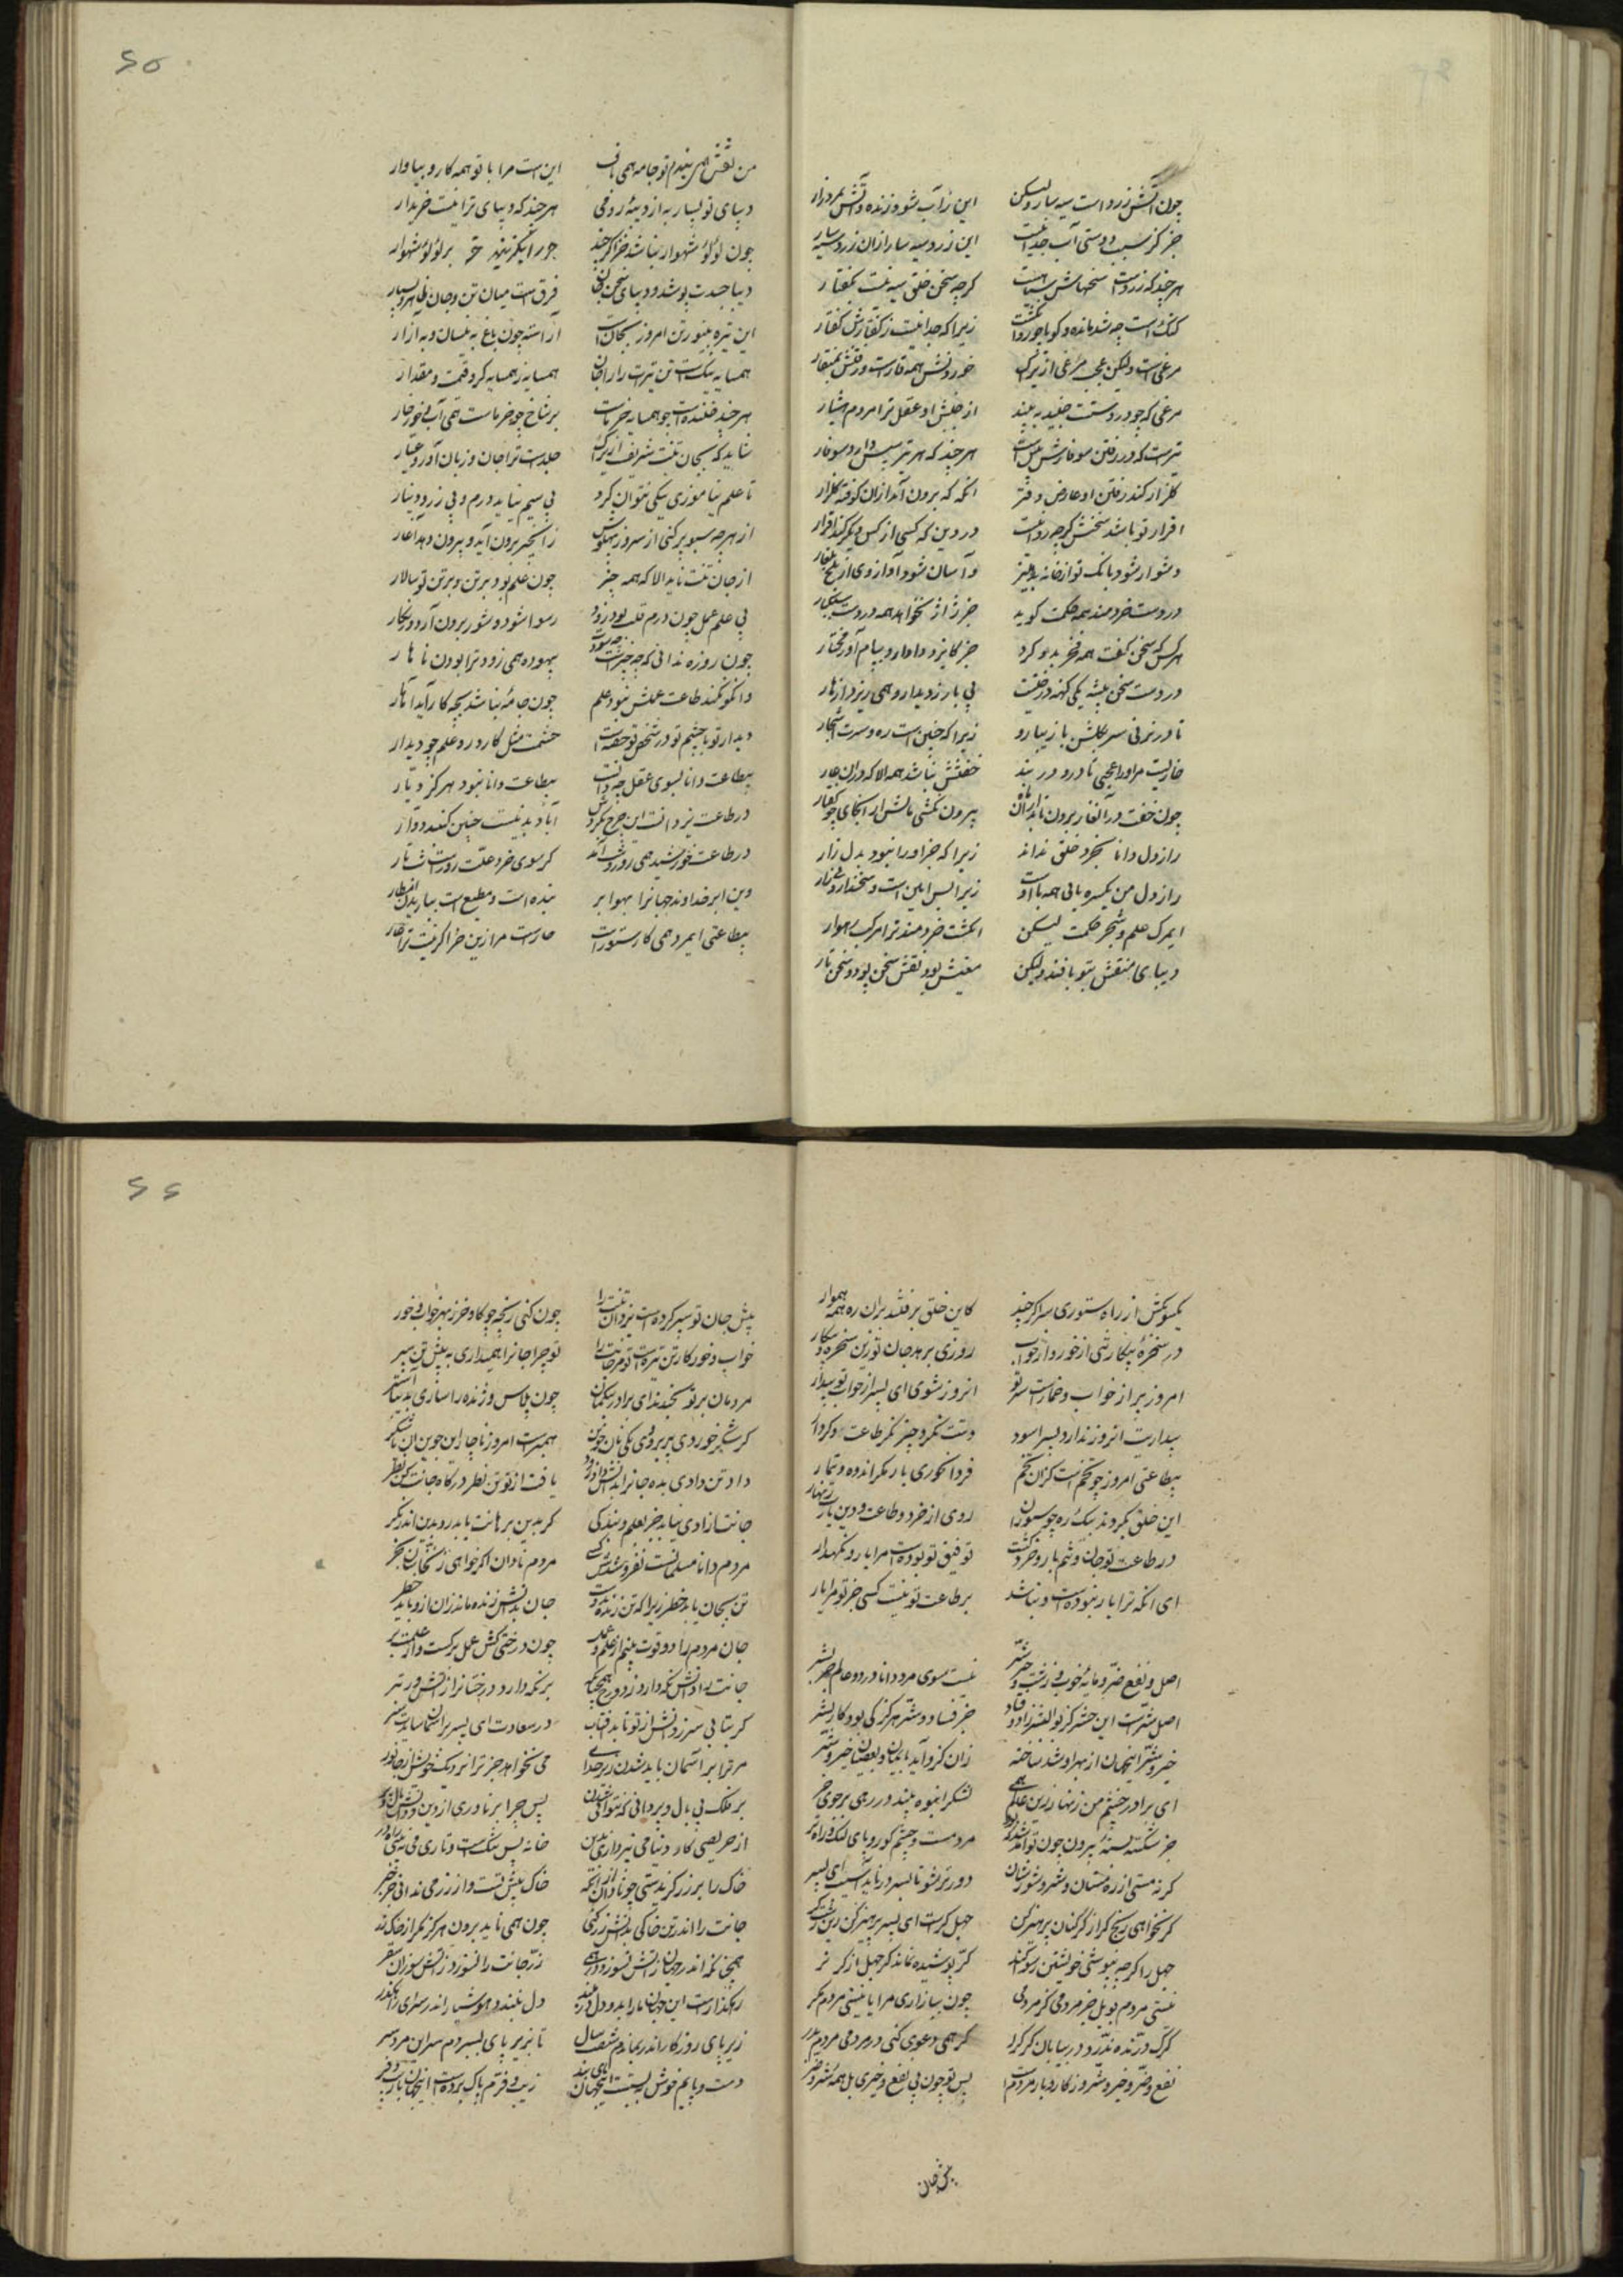 چون آتش زرد است سیه سار ولیکن این زاب شود زنده و آتش بمرد زار
جز کز سبب دوستی آب جدا نیست این زرد سیه سار ازان زرد سیه سار
هر چند که زرد است سخنهاش سیاهست گرچه سخن خلق سیه نیست بگفتار
گنگ است چو شد مانده و گویا چو روان گشت زیرا که جدا نیست ز گفتارش رفتار
مرغی است ولیکن عجبی مرغی ازیراک خوردنش همه قار است و رفتنش بمنقار
مرغی که چو در دست تو جنبید ببیند از جنبش او عقل ترا مردم هشیار
تیرست که در رفتن سوفارش به پیش است هر چند که هر تیر سپس دارد سوفار
گلزار کند رفتن او عارض دفتر آنگه که برون آید ازان کوفته گلزار
اقرار تو باشد سخنش گرچه روا نیست در دین که کسی از کس دیگر کند اقرار
دشوار شود بانگ تو از خانه بدهلیز و آسان شود آواز وی از بلخ ببلغار
در دست خردمند همه حکمت گوید جز ژاژ نخواهد همه در دست سبکسار
هر کس که سخن گفت همه فخر بدو کرد جز کایزد دادار و پیام آور مختار
در دست سخن پیشه یکی کهنه درختیست بی بار ز دیدار همی ریزد ازو بار
تا در نزنی سر بگلش باز نیارد زیرا که چنین است ره و سیرت اشجار
جائیست مر او را عجبی تا در و در بند خفتنش نباشد همه الا که دران غار
چون خفت در آن غار برون ناید ازان تا بیرون نکشی پایش از آنجای چو کفتار
راز دل دانا بجز او خلق نداند زیرا که جز او را نبود بدل زار
راز دل من یکسره باری همه با اوست زیرا بس امین است و سخندار و بی آزار
ای مرکب علم و شجر حکمت لیکن انگشت خردمند ترا مرکب رهوار
دیبای منقش بتو بافند ولیکن معنیش بود نقش و سخن پود و سخن تار
من نقش همی بندم و تو جامه همی باف این است مرا با تو همه کار و بیاوار
دیبای تو بسیار به از دیبه رومی هر چند که دیبای ترا نیست خریدار
چون لؤلؤ شهوار نباشد جو اگر چند جو را بگزیند خر بر لؤلؤ شهوار
دیبا جسدت پوشد و دیبای سخن جان فرق است میان تن و جان ظاهر و بسیار
این تیره و بی نور تن امروز بجان است آراسته چون باغ به نیسان و به آزار
همسایه نیک است تن تیره ات را جان همسایه ز همسایه گرد قیمت و مقدار
هر چند خلنده است چو همسایه خرماست بر شاخ چو خرماست همی آب خورد خار
شاید که بجان تنت شریف است ازیراک خلد است ترا جان و زبان آور و عیار
تا علم نیاموزی نیکی نتوان کرد بی سیم نیاید درم و بی زر دینار
از هر چه سبو پر کنی از سر وز پهلوش زان چیز برون آید و بیرون دهد آغار
از جان تنت ناید الا که همه چیز چون علم بود بر تن و بر تن تو سالار
بی علم عمل چون درم قلب بود زود رسوا شود و شوره برون آرد و زنگار
چون روزه ندانی که چه چیز است چه سودت بیهوده همی زود ترا بودن ناهار
وانکو نکند طاعت علمش نبود علم چون جامه نباشد بچه کار آید آهار
دیدار تو با چشم تو در شخص تو جفت است چشمت مثل کار و در و علم چو دیدار
بیطاعت دانا بسوی عقل چه دانست بیطاعت دانا نبود هرگز دیار
در طاعت یزدانست این چرخ بگردش آباد بدین است چنین گنبد دوار
در طاعت خورشید همی روز و شب آید کز سوی خرد علت روز است شب تار
وین ابر خداوند جهان را بهوا بر بنده است و مطیع است بباریدن امطار
بیطاعتی ای مرد همی کار ستور است عار است مرا زین خر اگر نیست ترا عار
یکسو بکش از راه ستوری سر اگر چند کاین خلق برفتند بران ره همه هموار
در سخره بیگار تنی از خور و از خواب روزی برهد جان تو زین سخره و بیگار
امروز پر از خواب و خمار است سر تو آنروز شوی ای پسر از خواب تو بیدار
بیداریت آنروز ندارد پسرا سود دستت نگرد چیز مگر طاعت و کردار
بیطاعتی امروز چو تخم است کزان تخم فردا نخوری بار مگر اندوه و تیمار
این خلق بکردند بیک ره چو ستوران روی از خرد و طاعت و دین یارب زنهار
در طاعت تو جان و تنم یار خرد گشت توفیق تو بوده است مرا یار و نگهدار
ای آنکه ترا یار نبوده است و نباشد بر طاعت تو نیست کسی جز تو مرا یار
اصل نفع و ضر و مایه خوب و زشت و خیر و شر نیست سوی مرد دانا در دو عالم جز بشر
اصل شر است این حشر کز بوالبشر زاد و فساد جز فساد و شر هرگز کی بود کار بشر
خیر و شر آن جهان از بهر او شد ساخته زان کزو آید بایمان و بعصیان خیر و شر
ای برادر چشم من زینها و زین عالم همی لشکر انبوه بیند در رهی پر جوی و جر
جز شکسته بسته بیرون چون تواند شد چو بود مرد مست و چشم کور و پای لنگ و راه تر
گر نه مستی از ره مستان و شر و شورشان دورتر شو تا بسر در ناید آسیب ای پسر
گر نخواهی رنج گر از گرگنان پرهیز کن جهل گر است ای پسر پرهیز کن زین زشت گر
جهل را گرچه بپوشی خویشتن رسوا کند گر پوشیده نماند گر جهل از گر بتر
نیستی مردم بویل جز مردمی کز مردمی چون ببازاری مرا یا نیستی مردم مگر
گرگ درنده ندرد در بیابان گرگ را گر همی دعوی کنی در مردمی مردم مدر
نفع و ضر و خیر و شر از کار و بار مردم است پس تو چون بی نفع و خیری بل همه شر و ضرر
پیش جان
پیش جان تو سپر کرده است یزدان تنت را چون کنی رنجه چو گاو و خر ز بهر خواب و خور
خواب و خور کار تن تیره است تو مر جانت را تو چرا جان را همی داری به پیش تن سپر
مردمان برتو بخندند ای برادر بیگمان چون پلاس ژنده را سازی بدیبا آستر
گر شکر خوردی پریر و دی یکی نان جوین همبر است امروز ناچار آن جوین با آن شکر
داد تن دادی بده جان را بدانش داد زود یافت از تو تن نظر در کار جانت کن نظر
جانت آزادی نیابد جز بعلم و بندگی گر بدین برهانت باید رو بدین اندر نگر
مردم دانا مسلمانست نفروشدش کس مردم نادان اگر خواهی ز نخاسان بخر
تن بجان یابد خطر زیرا که تن زنده بدوست جان بدانش زنده ماند زان ازو یابد خطر
جان مردم را دو قوت بینم از علم و عمل چون درختی کش عمل برگست و از علمست بر
جانت را دانش نگه دارد ز دوزخ همچنانک بر نگه دارد درختان را از آتش وز تبر
گر بتابی سر ز دانش از تو تابد آفتاب در سعادت ای پسر بر آسمان ساید سر
مر ترا بر آسمان باید شدن زیرا خدای می نخواهد جز ترا نزدیک خویش از جانور
بر فلک بی بال و پر دانی که نتوانی شدن پس چرا بر ناوری از دین و دانش بال و پر
از حریصی کار دنیا می نپردازی بدین خانه بس تنگ است و تاری می نبینی راه در
خاک را بر زر گزیدستی چو نادانان از آنک خاک پیش تست و از زر می ندانی جز خبر
جانت را اندر تن خاکی بدانش زر کنی چون همی ناید برون هرگز مگر از خاک زر
همچنان کاندر جهان آتش نسوزد زر همی زر جانت را نسوزد آتش سوزان سقر
رهگذار است این جهان ما را بدو دل در مبند دل نبندد هوشیار اندر سرای رهگذر
زیر پای روزگار اندر بماندم شصت سال تا بزیر پای بسپردم سراین مرد سر
دست و پایم خوش ببست این جهان پای بند زیب و فرم پاک برده است این جهان زیب و فر
۶۵
۶۶